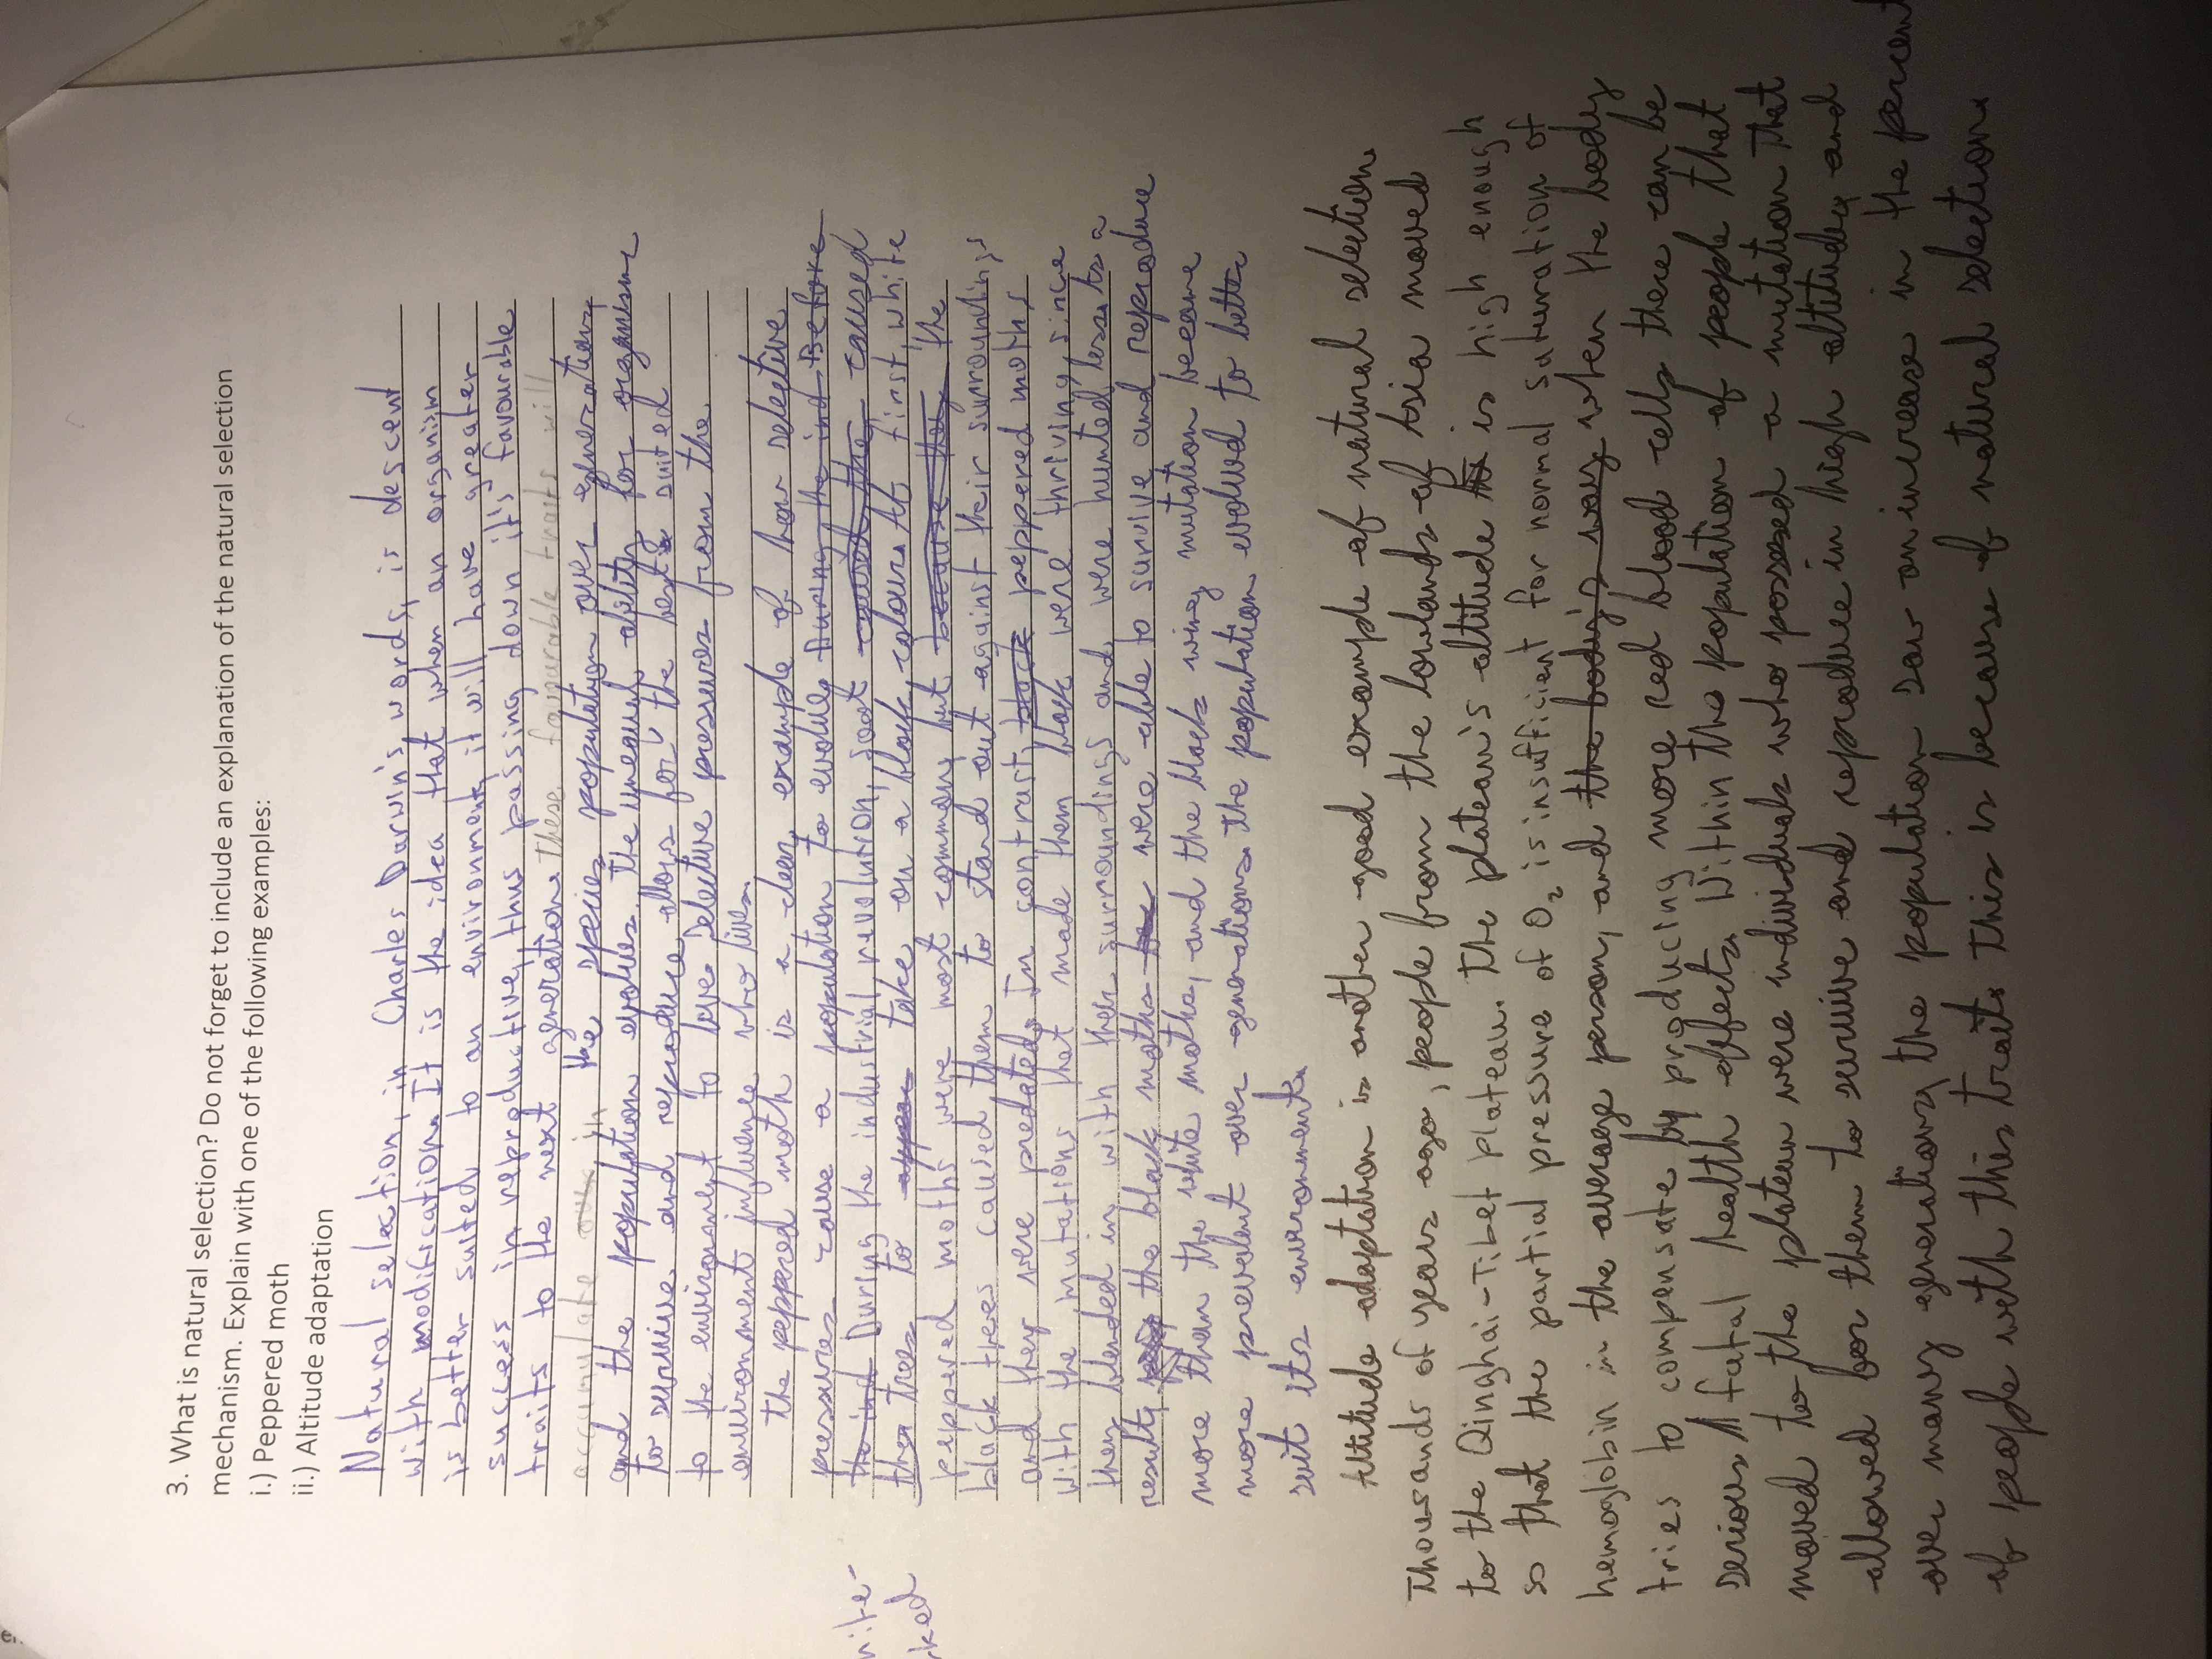 3. What is natural selection? Do not forget to include an explanation of the natural selection
mechanism. Explain with one of the following examples:
i.) Peppered moth
ii.) Altitude adaptation
Natural selection, in Charles Darwin's words, is descent
with modification. It is the idea that when an organism
is better suited to an environment, it will have greater
success in reproductive, thus passing down it's favourable
traits to the next generation. These favourable traits will
accumulate in the species population over generations,
and the population evolves. The unequal ability for organisms
to survive and reproduce allows for the best suited
to the environment to live. Selective pressures from the
environment influence who lives.
The peppered moth is a clear example of how selective
pressures cause a population to evolve. During the ind Before
the ind During the industrial revolution, soot caused the caused
white-
rked
thei trees to take on a black colour. At first, white
peppered moths were most common, but because they the
black trees caused them to stand out against their surroundings
and they were predated. In contrast, black peppered moths
with the mutations that made them black were thriving since
they blended in with their surroundings and were hunted less. As a
result, the black moths were able to survive and reproduce
more than the white moths, and the black wing mutation became
more prevalent over generations. The population evolved to better
suit its environment.
Altitude adaptation is another good example of natural selection.
Thousands of years ago, people from the lowlands of Asia moved
to the Qinghai-Tibet plateau. The plateau's altitude is high enough
so that the partial pressure of O₂ is insufficient for normal saturation of
hemoglobin in the average person, and the body's way when the body
tries to compensate by producing more red blood cells there can be
serious / fatal health effects. Within the population of people that
moved to the plateau were individuals who possesed a mutation that
allowed for them to survive and reproduce in high altitudes, and
over many generations, the population saw an increase in the percent
of people with this trait. This is because of natural selection.